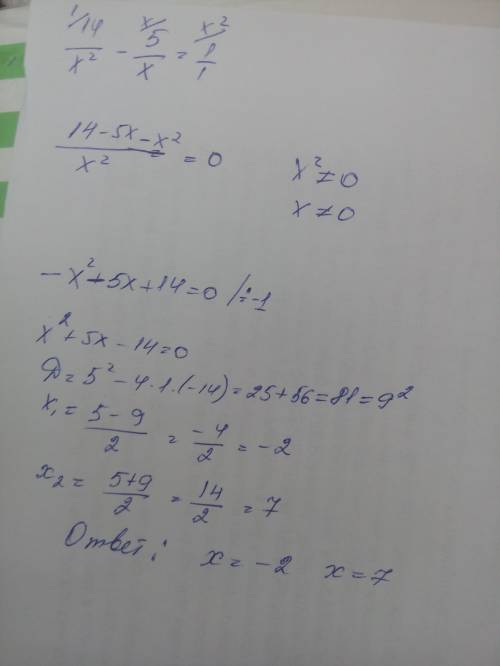 1/ 14/x² - x/ 5/x = x²/ 1/1
(14-5x-x²)/x² = 0
x² ≠ 0
x ≠ 0
-x²-5x+14=0 /:-1
x²+5x-14=0
D=5²-4·1·(-14)=25+56=81=9²
x₁= (5-9)/2 = -4/2 = -2
x₂= (5+9)/2 = 14/2 = 7
Ответ: x=-2 x=7